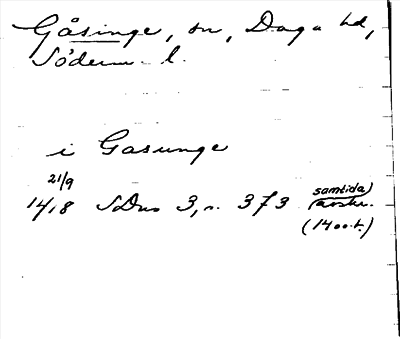 Gåsinge, sn, Daga hd,
Söderm. l.
i Gasunge
21/9
1418 SDns 3, s. 373 samtida
avskr.
(1400-t.)